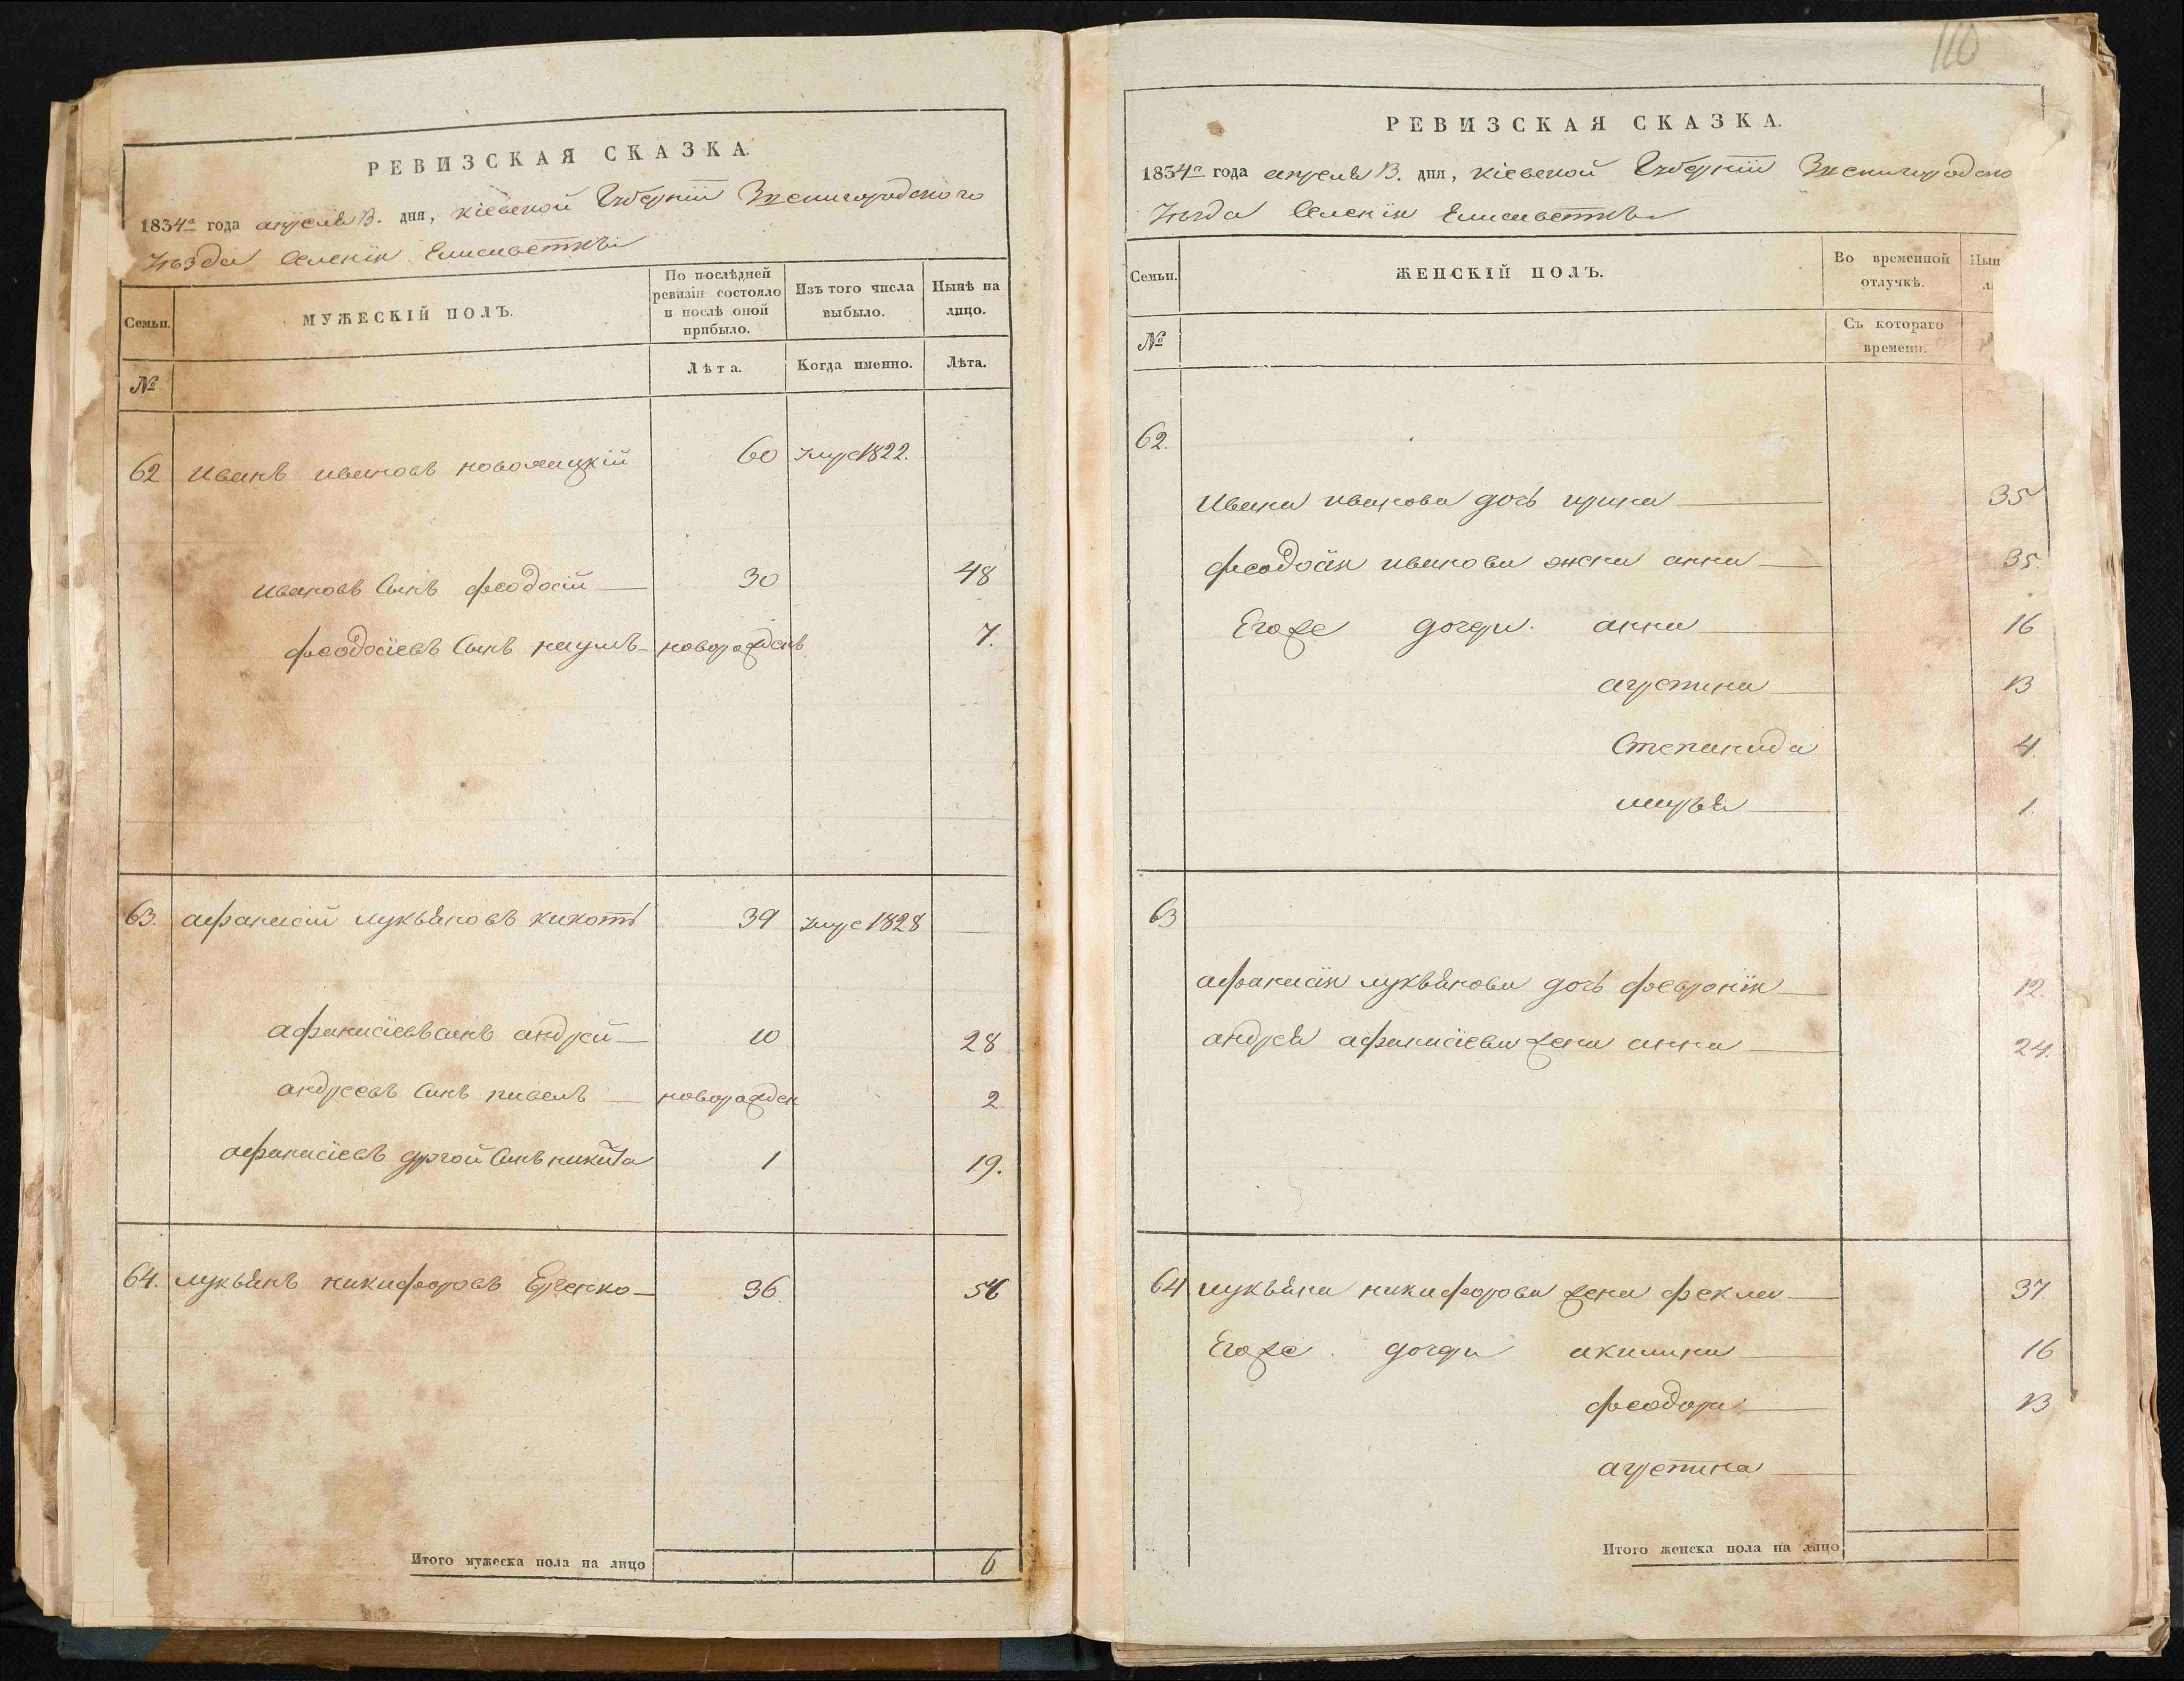 РЕВИЗСКАЯ СКАЗКА.
1834го года апреля 13. дня, Кіевской Губерніи Звенигородского
Уѣзда Селенія Елисаветки
Семьи. МУЖЕСКІЙ ПОЛЪ. По послѣдней ревизіи состояло и послѣ оной прибыло. Изъ того числа выбыло. Нынѣ на лицо.
№ Лѣта. Когда именно. Лѣта.
62 Иванъ ивановъ 60 Умре 1822.
ивановъ Сынъ феодосій 30 48
феодосіевъ Сынъ наумъ новорожденъ 7.
63. афанасій лукьяновъ кикоть 39 Умре 1828
афанасіевъ сынъ андрей 10 28
андреевъ Сынъ павелъ новорожден 2
афанасіевъ другой Сынъ никита 1 19.
64. лукьянъ никифоровъ 36 54
Итого мужеска пола на лицо 6
110
РЕВИЗСКАЯ СКАЗКА.
1834го года апреля 13. дня, Кіевской Губерніи Звенигородско
Уѣзда Селенія Елисаветки
Семьи. ЖЕНСКІЙ ПОЛЪ. Во временной отлучкѣ. Нын
№ Съ котораго времени.
62.
Ивана иванова дочь ирина 35
феодосія иванова жена анна 35.
Егоже дочери. анна 16
агрепина 13
Степанида 4.
марья 1.
63
афанасія лукьянова дочь февронія 12.
андрея афанасіева жена анна 24.
64 лукьяна никифорова жена фекла 37.
Егоже. дочери акилина 16
феодора. 13
агрепина
Итого женска пола на лицо